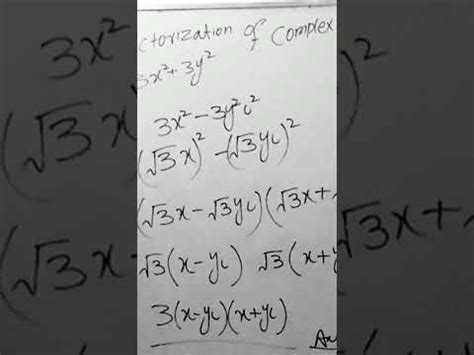 ctorization of Complex
3x²+3y²
3x² - 3y²i²
(√3x)² - (√3yi)²
(√3x - √3yi)(√3x+
√3(x-yi) √3(x+y
3(x-yi)(x+yi)